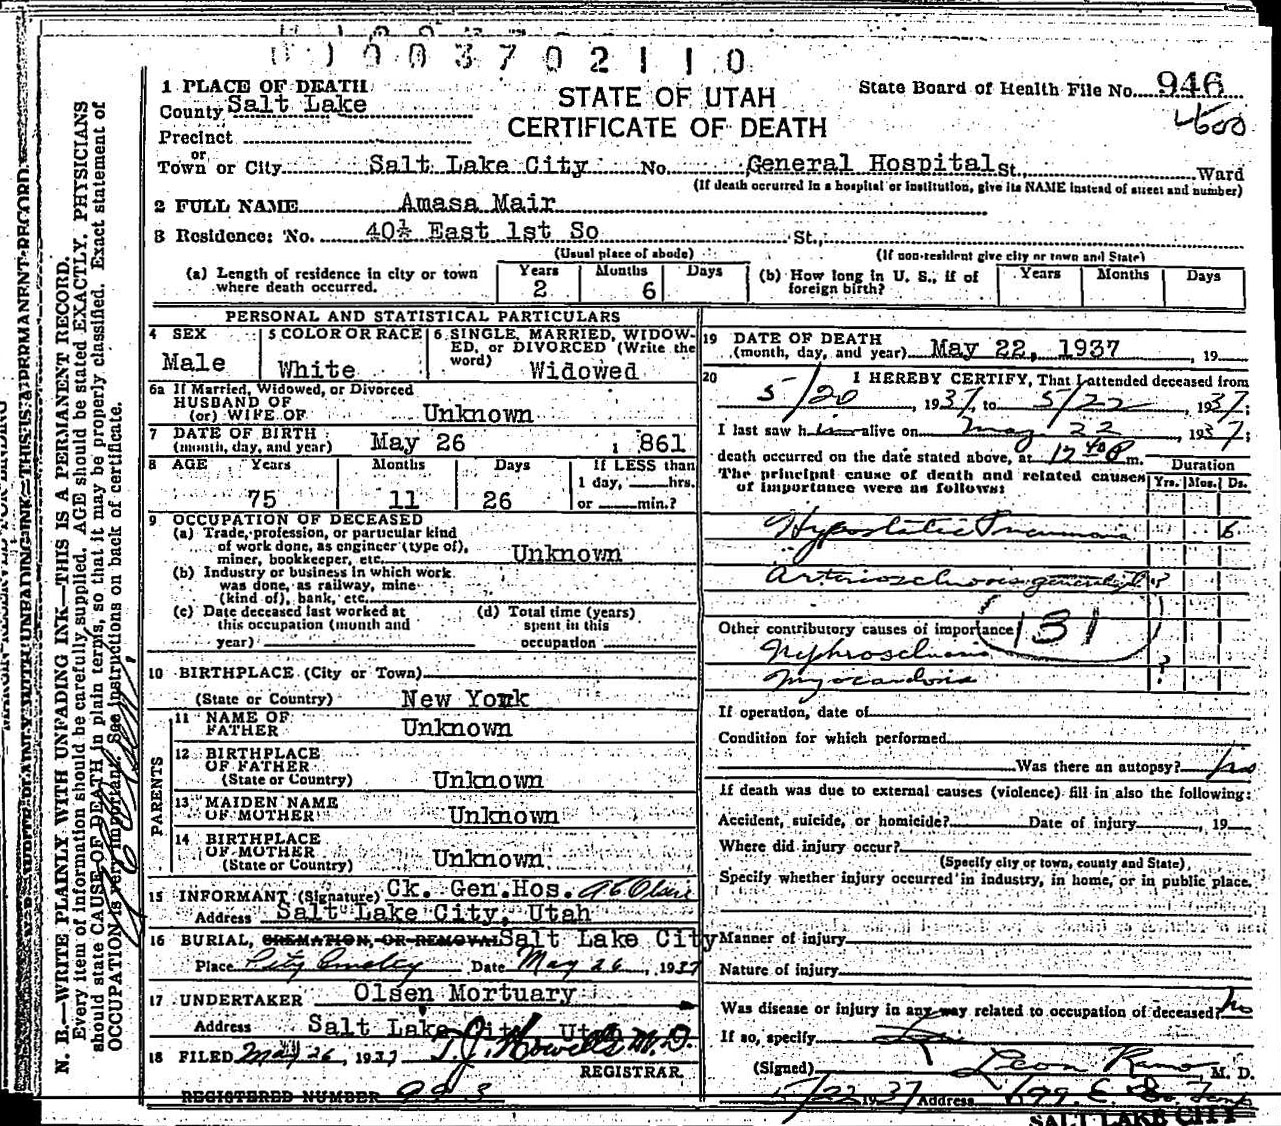 1003702110
1 PLACE OF DEATH
County Salt Lake
STATE OF UTAH
CERTIFICATE OF DEATH
State Board of Health File No. 946
Precinct
or
Town or City Salt Lake City No. General Hospital St., Ward
(If death occurred in a hospital or institution, give its NAME instead of street and number)
2 FULL NAME Amasa Mair
3 Residence: No. 40½ East 1st So St.,
(Usual place of abode) (If non-resident give city or town and State)
(a) Length of residence in city or town where death occurred. Years 2 Months 6 Days
(b) How long in U. S., if of foreign birth? Years Months Days
PERSONAL AND STATISTICAL PARTICULARS
4 SEX Male
5 COLOR OR RACE White
6 SINGLE, MARRIED, WIDOWED, or DIVORCED (Write the word) Widowed
6a If Married, Widowed, or Divorced
HUSBAND OF
(or) WIFE OF Unknown
7 DATE OF BIRTH
(month, day, and year) May 26 1861
8 AGE Years 75 Months 11 Days 26
If LESS than
1 day, hrs.
or min.?
9 OCCUPATION OF DECEASED
(a) Trade, profession, or particular kind
of work done, as engineer (type of),
miner, bookkeeper, etc. Unknown
(b) Industry or business in which work
was done, as railway, mine
(kind of), bank, etc.
(c) Date deceased last worked at
this occupation (month and
year)
(d) Total time (years)
spent in this
occupation
10 BIRTHPLACE (City or Town)
(State or Country) New York
PARENTS
11 NAME OF
FATHER Unknown
12 BIRTHPLACE
OF FATHER
(State or Country) Unknown
13 MAIDEN NAME
OF MOTHER Unknown
14 BIRTHPLACE
OF MOTHER
(State or Country) Unknown
15 INFORMANT (Signature) Ck. Gen.Hos.
Address Salt Lake City, Utah
16 BURIAL, CREMATION, OR REMOVAL Salt Lake City
Place City Date May 26, 1937
17 UNDERTAKER Olsen Mortuary
Address Salt Lake City Utah
18 FILED May 26, 1937 T. J. Howells M.D.
REGISTRAR.
REGISTERED NUMBER 993
19 DATE OF DEATH
(month, day, and year) May 22, 1937, 19
20 I HEREBY CERTIFY, That I attended deceased from
5/20, 1937, to 5/22, 1937;
I last saw him alive on May 22, 1937;
death occurred on the date stated above, at 12 40 P m.
The principal cause of death and related causes
of importance were as follows:
Duration
Yrs. Mos. Ds.
Hypostatic Pneumonia 6
Arteriosclerosis generalized ?
Other contributory causes of importance 131
Nephrosclerosis
Myocardosis ?
If operation, date of
Condition for which performed
Was there an autopsy? No
If death was due to external causes (violence) fill in also the following:
Accident, suicide, or homicide? Date of injury , 19
Where did injury occur?
(Specify city or town, county and State)
Specify whether injury occurred in industry, in home, or in public place.
Manner of injury
Nature of injury
Was disease or injury in any way related to occupation of deceased? No
If so, specify
(Signed) Leon M. D.
5/22 1937 Address
SALT LAKE CITY
N. B.—WRITE PLAINLY WITH UNFADING INK—THIS IS A PERMANENT RECORD.
Every item of information should be carefully supplied. AGE should be stated EXACTLY. PHYSICIANS
should state CAUSE OF DEATH in plain terms, so that it may be properly classified. Exact statement of
OCCUPATION is very important. See instructions on back of certificate.